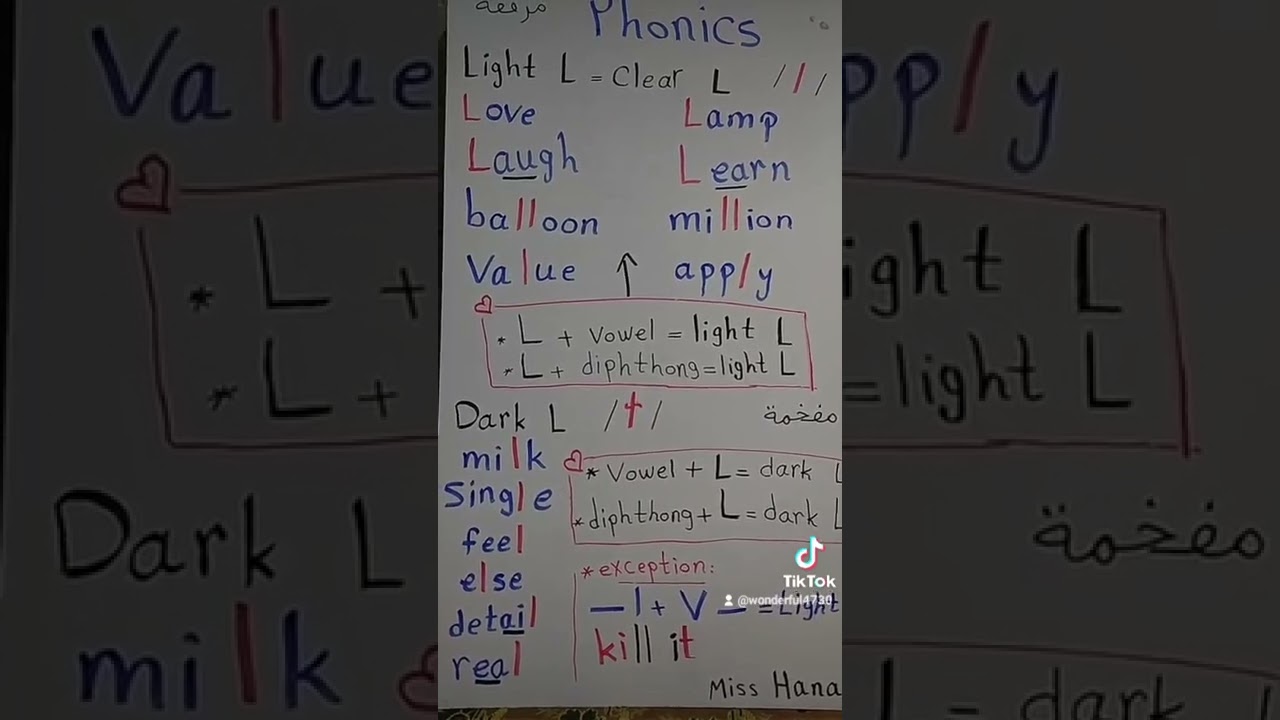 مرققة
Phonics
Light L = Clear L /l/
Love Lamp
Laugh Learn
balloon million
Value ↑ apply
* L + vowel = light L
* L + diphthong = light L
Dark L /ɫ/ مفخمة
milk
Single
feel
else
detail
real
* Vowel + L = dark L
* diphthong + L = dark L
* exception:
— l + V — = Light
kill it
Miss Hana
TikTok
@wonderful4730
Value
apply
* L +
ight L
* L +
= light L
Dark L
مفخمة
milk
L = dark